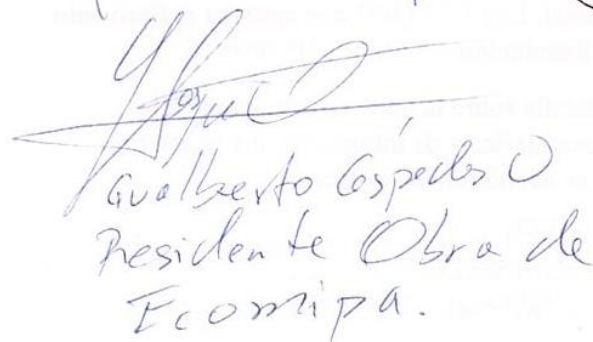 Gualberto Céspedes O
Residente Obra de
Ecomipa.